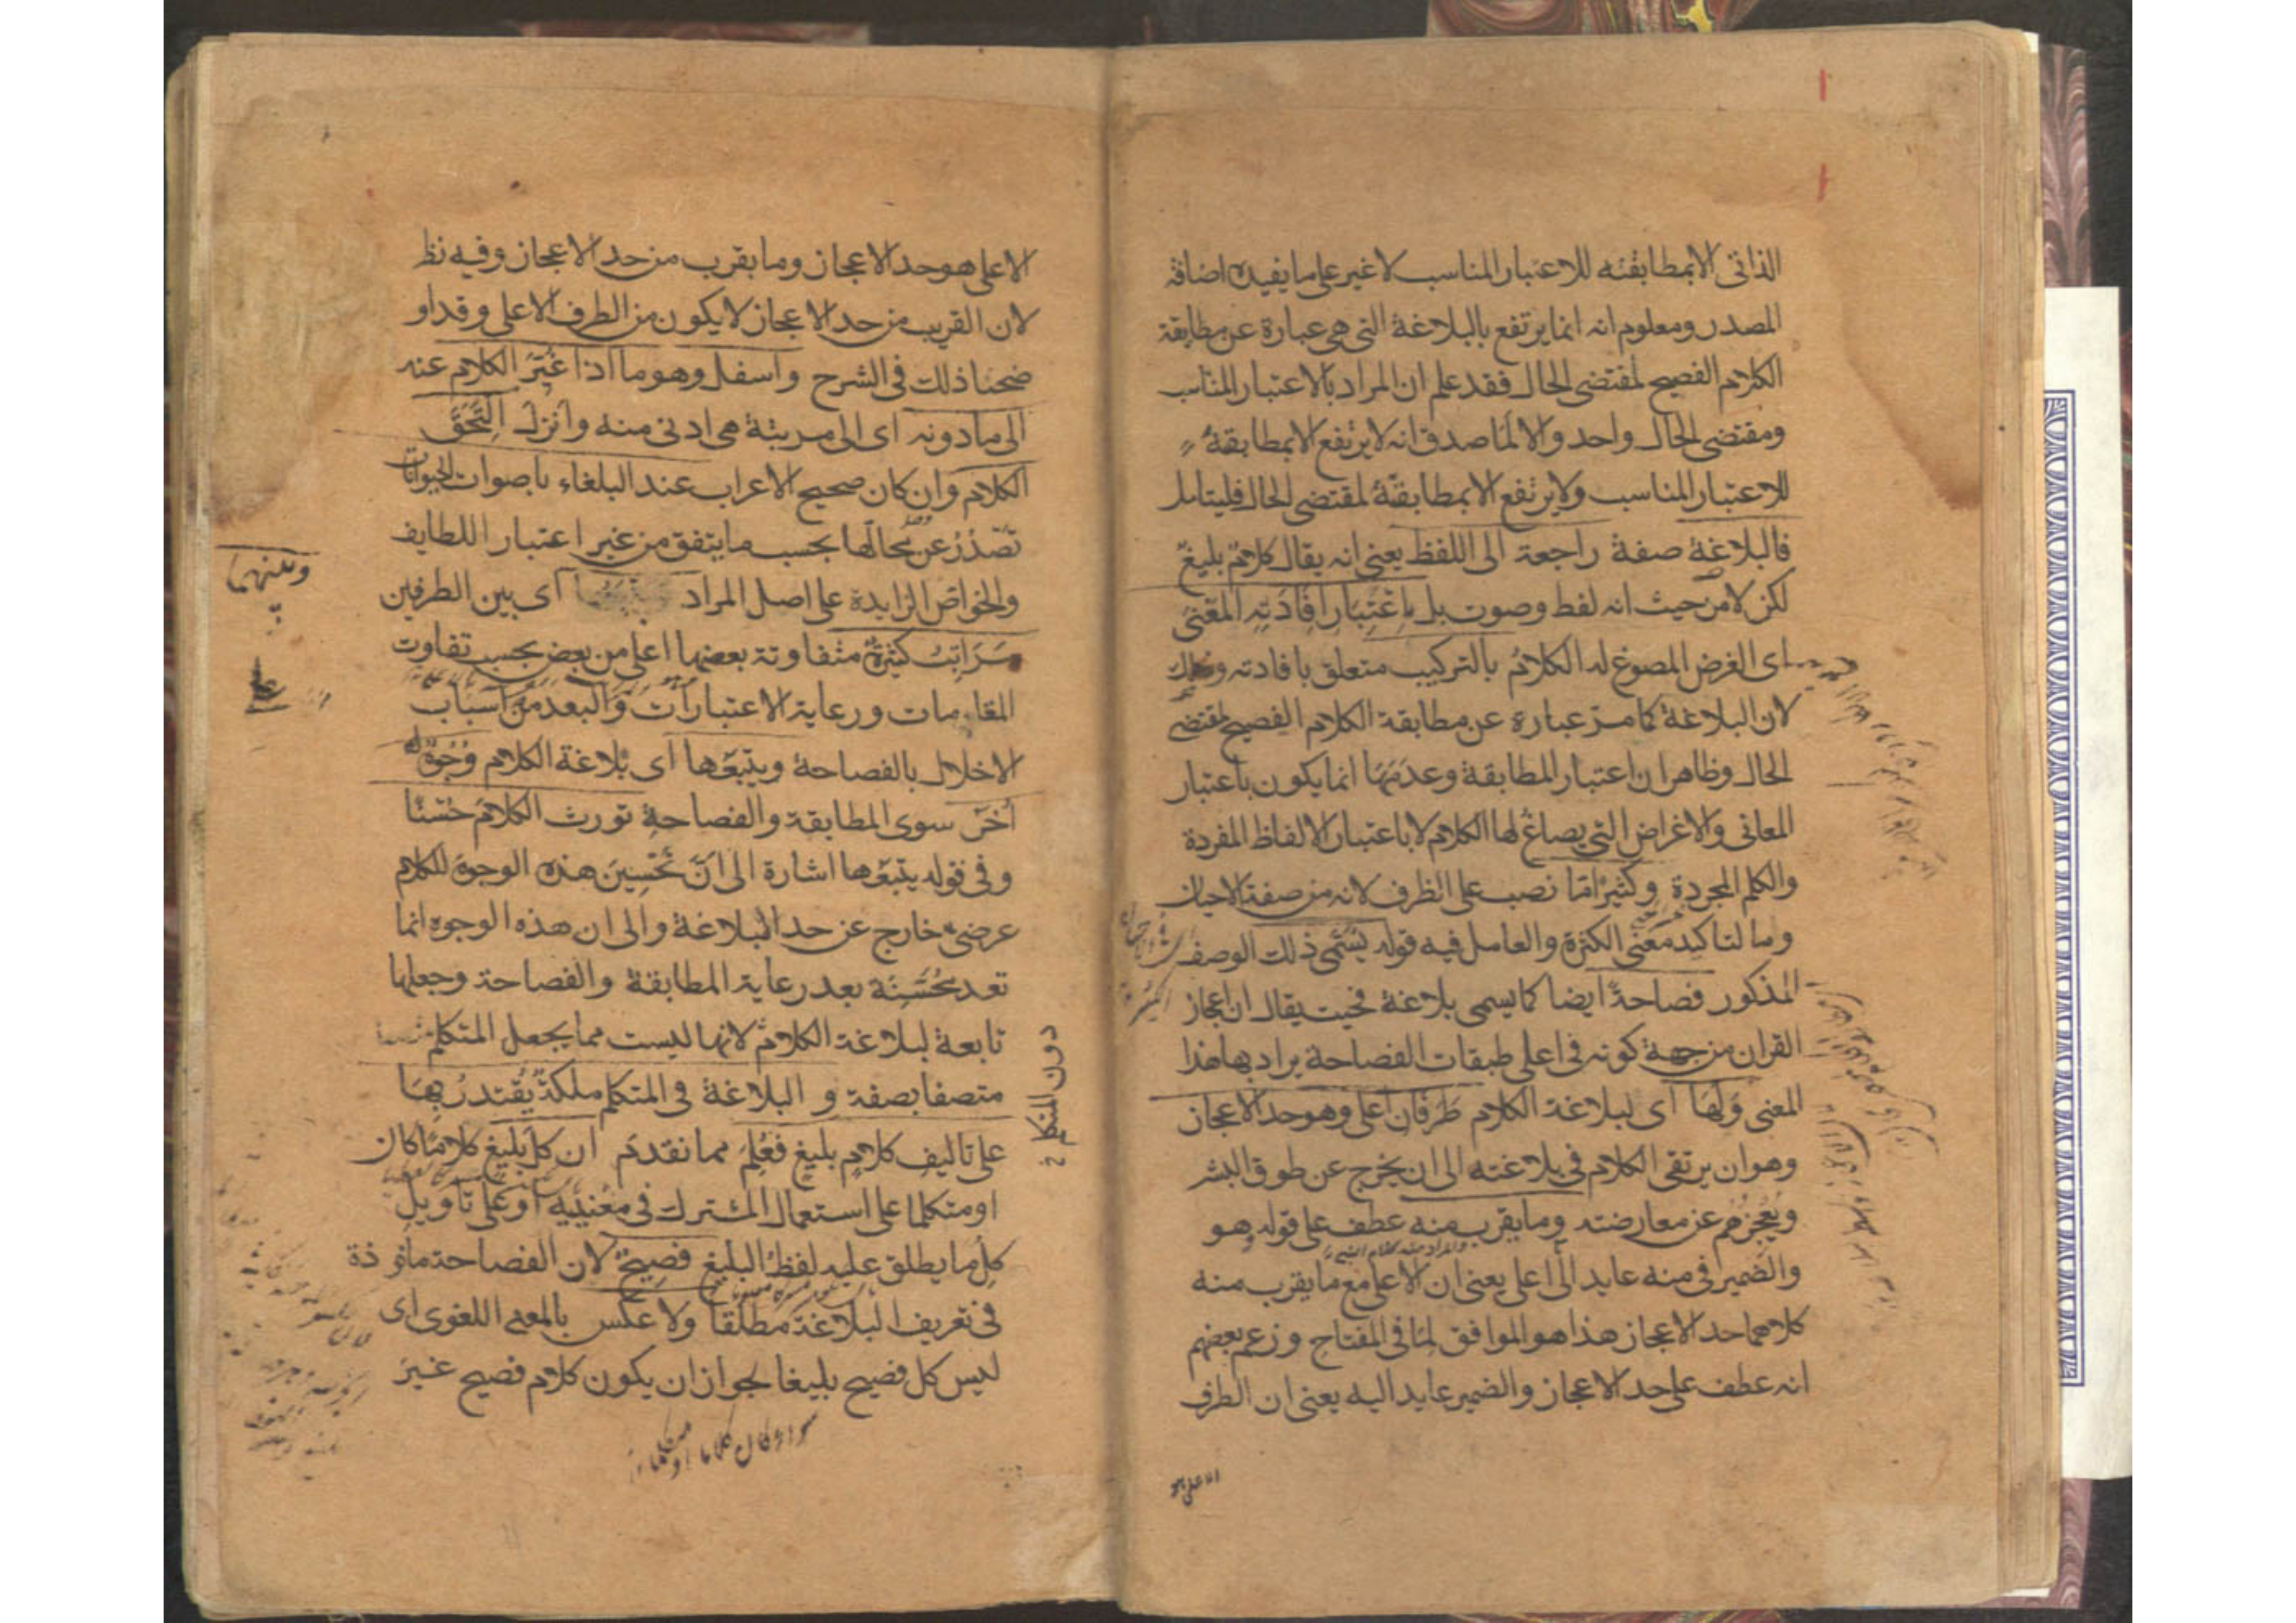 الذاتى الا بمطابقته للاعتبار المناسب لا غير على ما يفيده اضافة
المصدر ومعلوم انه انما يرتفع بالبلاغة التى هى عبارة عن مطابقة
الكلام الفصيح لمقتضى الحال فقد علم ان المراد بالاعتبار المناسب
ومقتضى الحال واحد والا لما صدق انه لا يرتفع الا بمطابقة
للاعتبار المناسب ولا يرتفع الا بمطابقته لمقتضى الحال فليتامل
فالبلاغة صفة راجعة الى اللفظ يعنى انه يقال كلام بليغ
لكن لا من حيث انه لفظ وصوت بل باعتبار افادته المعنى
اى الغرض المصوغ له الكلام بالتركيب متعلق بافادته وذلك
لان البلاغة كما مر عبارة عن مطابقة الكلام الفصيح لمقتضى
الحال وظاهر ان اعتبار المطابقة وعدمها انما يكون باعتبار
المعانى والاغراض التى يصاغ لها الكلام لا باعتبار الالفاظ المفردة
والكلم المجردة وكثيرا ما نصب على الظرف لانه من صفة الاحيان
وما لتاكيد معنى الكثرة والعامل فيه قوله يسمى ذلك الوصف
المذكور فصاحة ايضا كما يسمى بلاغة فحيث يقال ان اعجاز
القران من جهة كونه فى اعلى طبقات الفصاحة يراد بها هذا
المعنى ولها اى لبلاغة الكلام طرفان اعلى وهو حد الاعجاز
وهو ان يرتقى الكلام فى بلاغته الى ان يخرج عن طوق البشر
ويعجزهم عن معارضته وما يقرب منه عطف على قوله هو
والضمير فى منه عايد الى اعلى يعنى ان الاعلى مع ما يقرب منه
كلاهما حد الاعجاز هذا هو الموافق لما فى المفتاح وزعم بعضهم
انه عطف على حد الاعجاز والضمير عايد اليه يعنى ان الطرف
الاعلى هو
الاعلى هو حد الاعجاز وما يقرب من حد الاعجاز وفيه نظر
لان القريب من حد الاعجاز لا يكون من الطرف الاعلى وقد او
ضحنا ذلك فى الشرح واسفل وهو ما اذا غير الكلام عنه
الى ما دونه اى الى مرتبة هى ادنى منه وانزل التحق
الكلام وان كان صحيح الاعراب عند البلغاء باصوات الحيوانات
تصدر عن محالها بحسب ما يتفق من غير اعتبار اللطايف
والخواص الزايدة على اصل المراد اى بين الطرفين
وبينهما
مراتب كثيرة متفاوتة بعضها اعلى من بعض بحسب تفاوت
المقامات ورعاية الاعتبارات والبعد من اسباب
الاخلال بالفصاحة ويتبعها اى بلاغة الكلام وجوه
اخر سوى المطابقة والفصاحة تورث الكلام حسنا
وفى قوله يتبعها اشارة الى ان تحسين هذه الوجوه للكلام
عرضى خارج عن حد البلاغة والى ان هذه الوجوه انما
تعد محسنة بعد رعاية المطابقة والفصاحة وجعلها
تابعة لبلاغة الكلام لانها ليست مما يجعل المتكلم
دون المتكلم
متصفا بصفة و البلاغة فى المتكلم ملكة يقتدر بها
على تاليف كلام بليغ فعلم مما تقدم ان كل بليغ كلاما كان
او متكلما على استعمال المشترك فى معنييه او على تاويل
كل ما يطلق عليه لفظ البليغ فصيح لان الفصاحة ماخوذة
فى تعريف البلاغة مطلقا ولا عكس بالمعنى اللغوى اى
ليس كل فصيح بليغا لجواز ان يكون كلام فصيح غير
سواء كان كلاما او متكلما